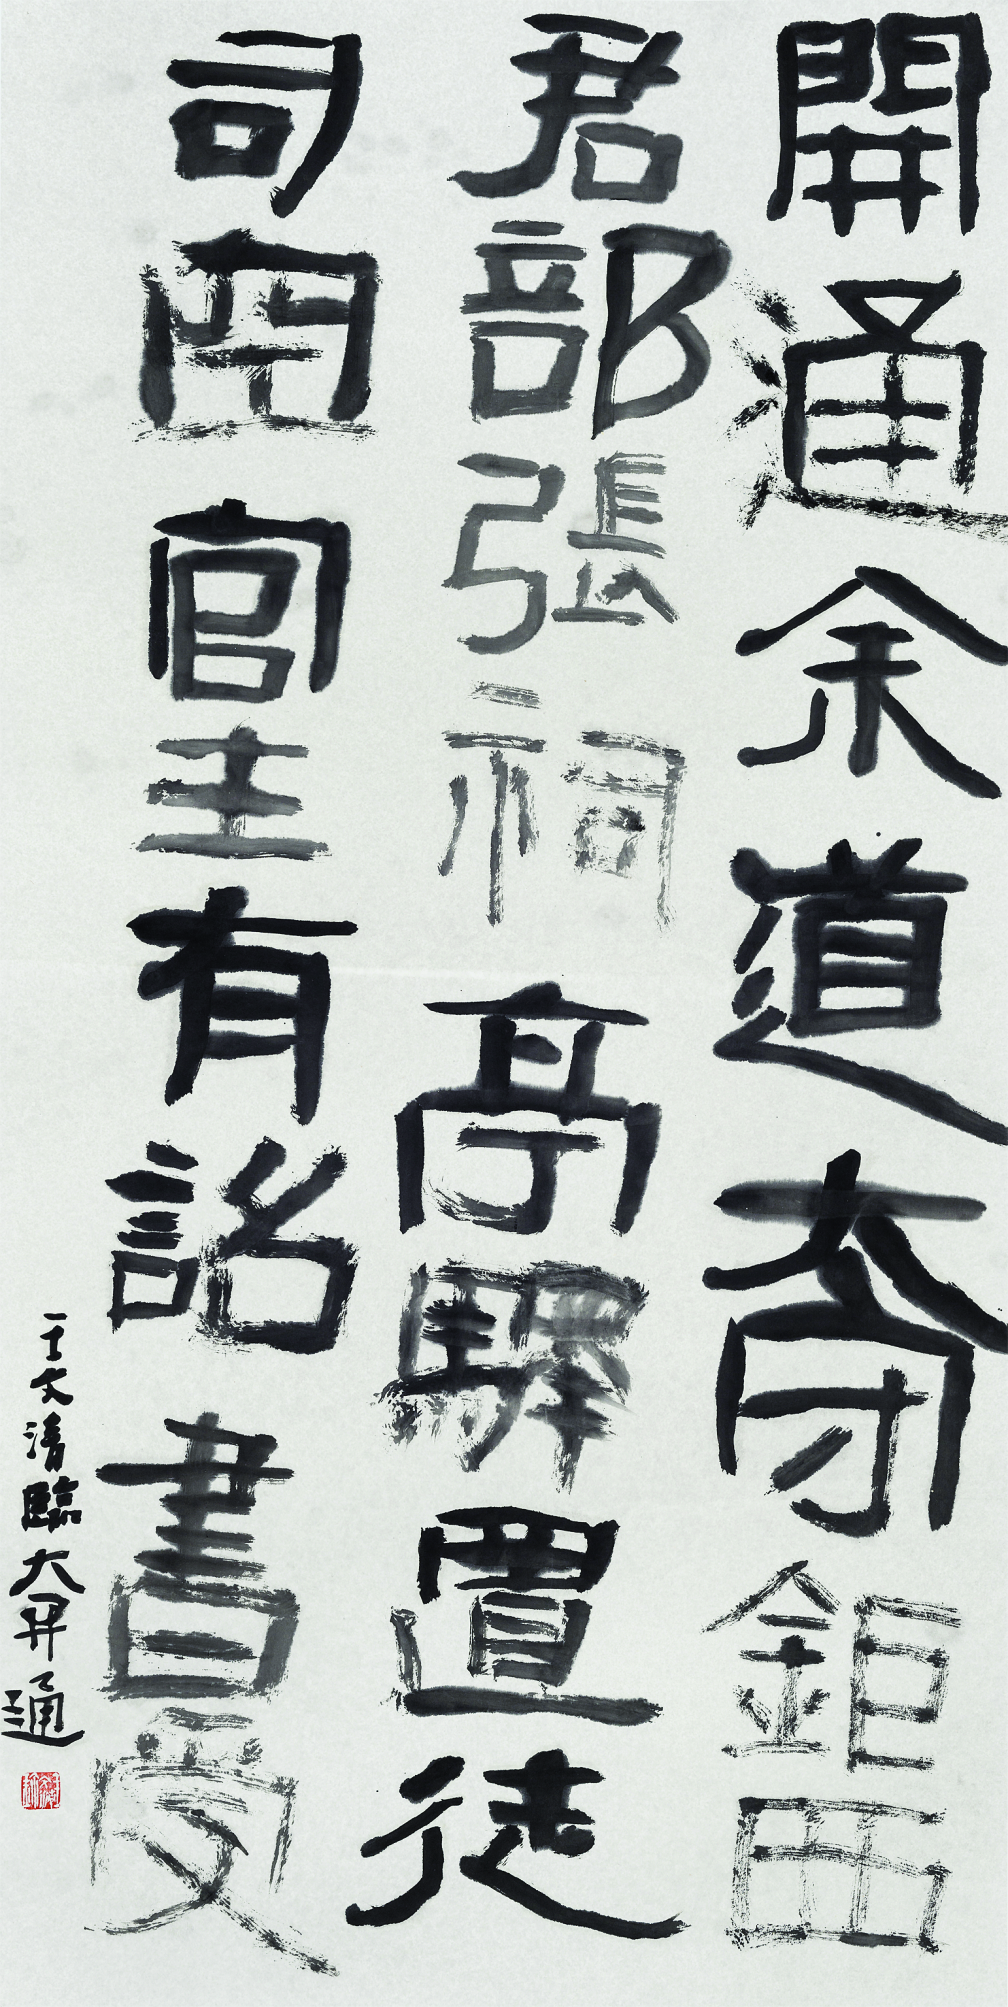 開通余道大守鉅西
君部張祠亭驛置徒
司空官主有詔書受
于文清臨大开通